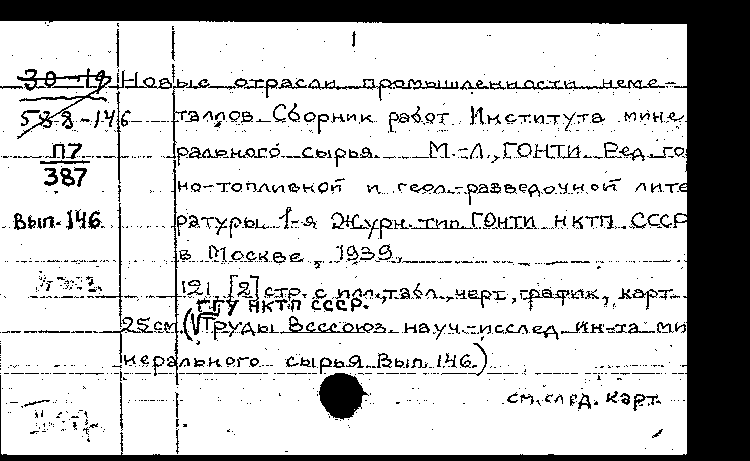 1
30-19 Новые отрасли промышленности неме-
588-146 таллов. Сборник работ Института мине
П7 рального сырья. М.-Л., ГОНТИ. Ред. го
387 но-топливной и геол.-разведочной лите
Вып. 146 ратуры. 1-я Журн. тип. ГОНТИ НКТП СССР
в Москве, 1939.
121, [2] стр. с илл., табл., черт., график., карт.
ГГУ НКТП СССР.
25 см. (Труды Всесоюз. науч.-исслед. ин-та ми
нерального сырья. Вып. 146.)
см. след. карт.